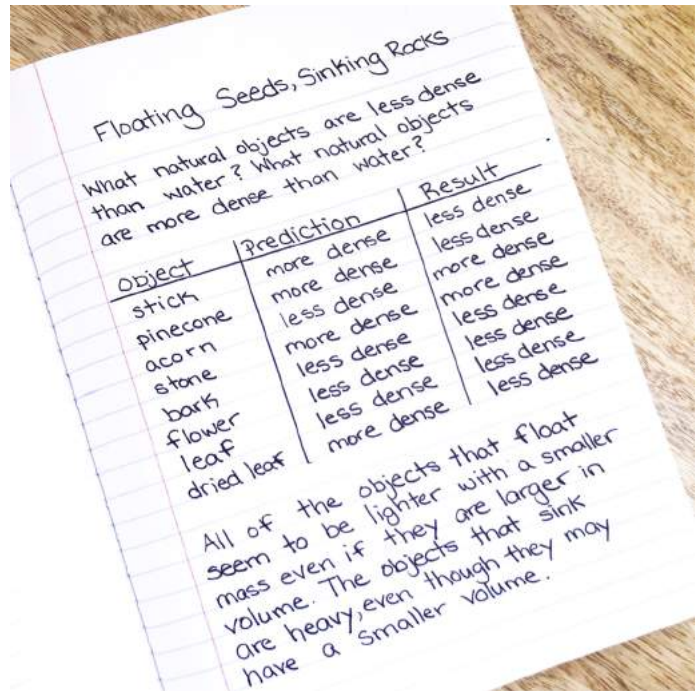 Floating Seeds, Sinking Rocks
What natural objects are less dense
than water? What natural objects
are more dense than water?
Object Prediction Result
stick more dense less dense
pinecone more dense less dense
acorn less dense more dense
stone more dense more dense
bark less dense less dense
flower less dense less dense
leaf less dense less dense
dried leaf more dense less dense
All of the objects that float
seem to be lighter with a smaller
mass even if they are larger in
volume. The objects that sink
are heavy, even though they may
have a smaller volume.